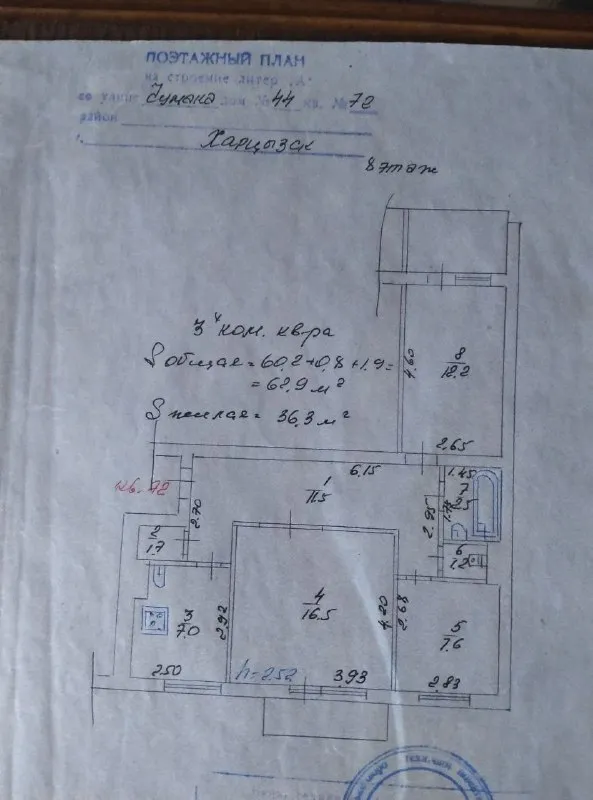 ПОЭТАЖНЫЙ ПЛАН
на строение литер „А“
по улице Чумака дом № 44 кв. № 72
район
г. Харцызск
8 этаж
3х ком. кв-ра
S общая = 60.2+0.8+1.9=
= 62.9 м²
S жилая = 36.3 м²
4.60
8
12.2
2.65
6.15
1.45
кв. 72
1
11.5
7
2.5
2.70
2.95
1.75
2
1.7
6
1.2
3
7.0
2.92
4
16.5
4.20
2.68
5
7.6
2.50
h=2.52
3.93
2.83